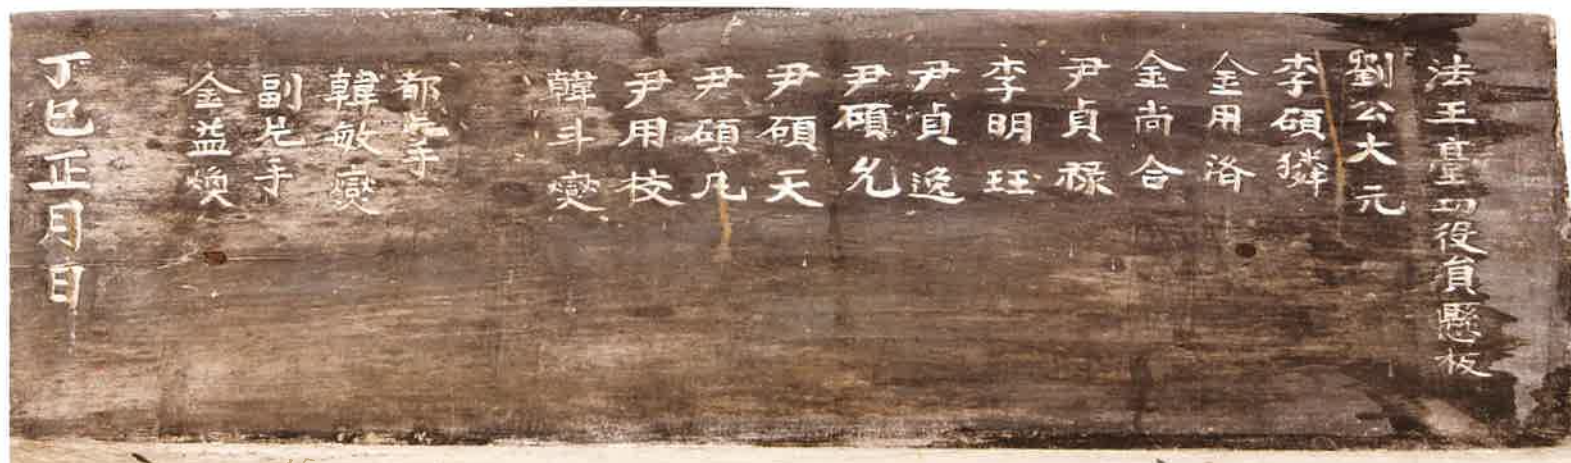 法王臺功役員懸板
劉公大元
李碩獜
金用洛
金尚合
尹貞祿
李明珏
尹貞逸
尹碩允
尹碩天
尹碩凡
尹用校
韓斗燮
都片手
韓敏燮
副片手
金益煥
丁巳正月日